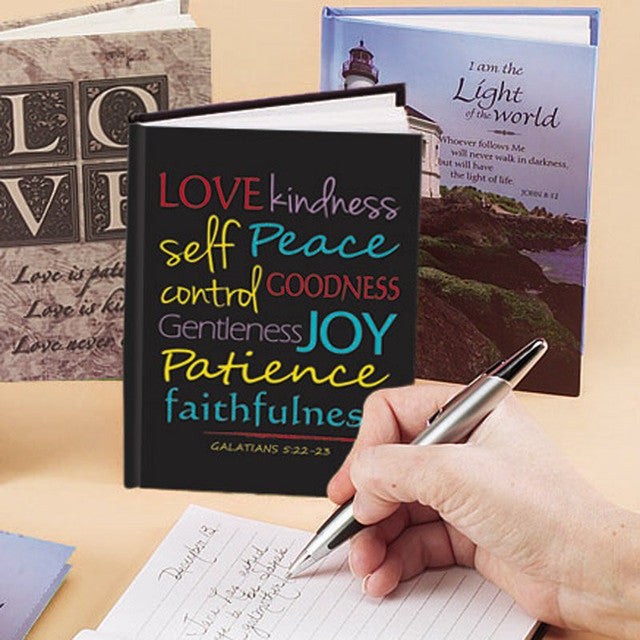 LO
VE
Love is
Love is
Love never
LOVE kindness
self Peace
control GOODNESS
Gentleness JOY
Patience
faithfulnes
GALATIANS 5:22-23
I am the
Light
of the world
Whoever follows Me
will never walk in darkness,
but will have
the light of life.
JOHN 8:12
December 13